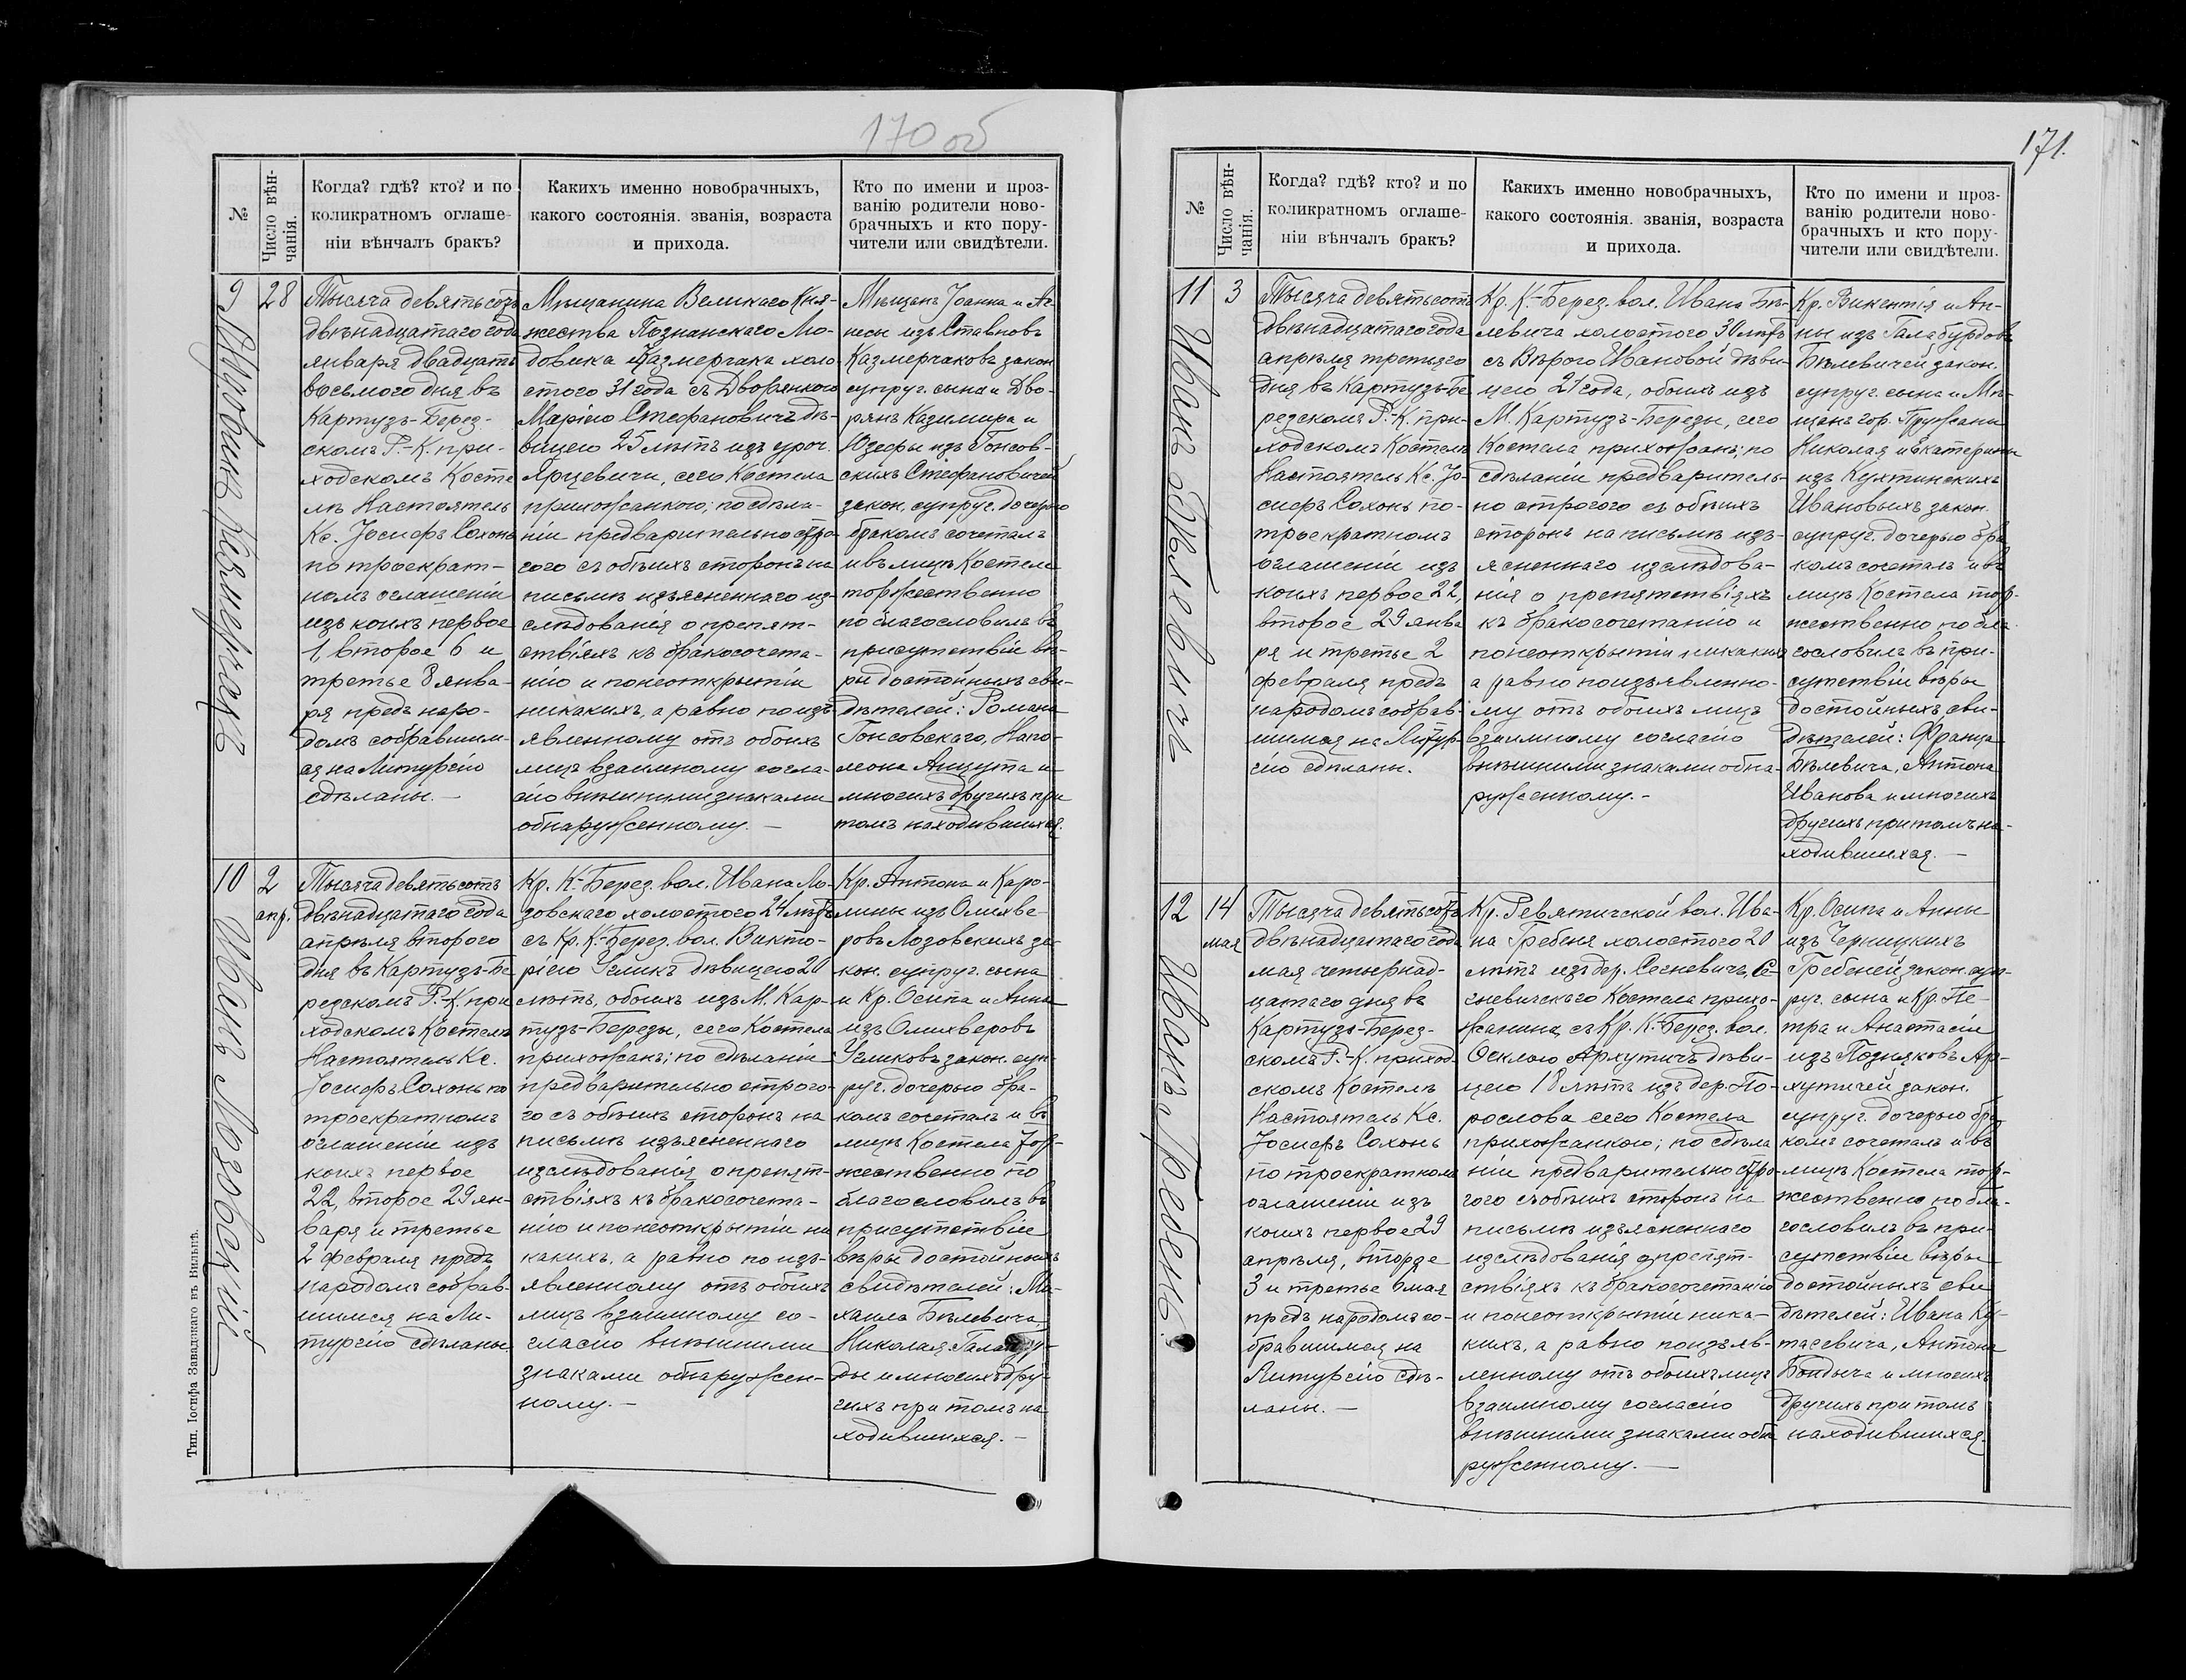 170 об
№
Число вѣн-
чанія.
Когда? гдѣ? кто? и по
коликратномъ оглаше-
ніи вѣнчалъ бракъ?
Какихъ именно новобрачныхъ,
какого состоянія. званія, возраста
и прихода.
Кто по имени и проз-
ванію родители ново-
брачныхъ и кто пору-
чители или свидѣтели.
9
28
Людовикъ Казмерчакъ
Тысяча девятьсотъ
двѣнадцатаго года
января двадцать
восьмого дня въ
Картузъ-Берез-
скомъ Р.-К. при-
ходскомъ Косте
лѣ Настоятель
Кс. Іосифъ Сохонь
по троекрат-
номъ оглашеніи
изъ коихъ первое
1, второе 6 и
третье 8 янва-
ря предъ наро-
домъ собравшим-
ся на Литургію
сдѣланы.-
Мѣщанина Великаго Кня-
жества Познанскаго Лю-
довика Казмерчака холо
стого 31 года съ Дворянкою
Марією Стефановичъ дѣ-
вицею 25 лѣтъ изъ уроч.
Ярцевичи, сего Костела
прихожанкою; по сдѣла-
ніи предварительно стро-
гого съ обѣихъ сторонъ на
письмѣ изъясненнаго из-
слѣдованія о препят-
ствіяхъ къ бракосочета-
нію и по неоткрытіи
никакихъ, а равно по изъ-
явленному отъ обоихъ
лицъ взаимному согла-
сію внѣшними знаками
обнаруженному. -
Мѣщанъ Іоанна и Аг-
несы изъ Ставновъ
Казмерчаковъ закон
супруг. сына и Дво-
рянъ Казимира и
Юзефы изъ Гонсов-
скихъ Стефановичей
закон. супруг. дочерью
бракомъ сочеталъ
и въ лицѣ Костела
торжественно
по благословилъ въ
присутствіи вѣ-
ры достойныхъ сви-
дѣтелей: Романа
Гонсовскаго, Напо-
леона Анцута и
многихъ другихъ при
томъ находившихся.
10
2
апр.
Иванъ Лозовскій
Тысяча девятьсотъ
двѣнадцатаго года
апрѣля второго
дня въ Картузъ-Бе
резскомъ Р.-К. при
ходскомъ Костелѣ
Настоятель Кс.
Іосифъ Сохонь по
троекратномъ
оглашеніи изъ
коихъ первое
22, второе 29 ян-
варя и третье
2 февраля предъ
народомъ собрав-
шимся на Ли-
тургію сдѣланы
Кр. К.-Берез. вол. Ивана Ло-
зовскаго холостого 24 лѣтъ
съ Кр. К.-Берез. вол. Викто-
рією Усликъ дѣвицею 20
лѣтъ, обоихъ изъ М. Кар-
тузъ-Березы, сего Костела
прихожанъ; по сдѣланіи
предварительно строго-
го съ обѣихъ сторонъ на
письмѣ изъясненнаго
изслѣдованія о препят-
ствіяхъ къ бракосочета-
нію и по неоткрытіи ни
какихъ, а равно по изъ-
явленному отъ обоихъ
лицъ взаимному со-
гласію внѣшними
знаками обнаружен-
ному.-
Кр. Антона и Каро-
лины изъ Олихве-
ровъ Лозовскихъ за-
кон. супруг. сына
и Кр. Осипа и Анны
изъ Олихверовъ
Усликовъ закон. суп-
руг. дочерью бра-
комъ сочеталъ и въ
лицѣ Костела тор-
жественно по
благословилъ въ
присутствіи
вѣры достойныхъ
свидѣтелей: Ми-
хаила Бѣлевича,
Николая
ды и многихъ дру-
гихъ при томъ на
ходившихся.-
Тип. Іосифа Завадзкаго въ Вильнѣ.
171.
№
Число вѣн-
чанія.
Когда? гдѣ? кто? и по
коликратномъ оглаше-
ніи вѣнчалъ бракъ?
Какихъ именно новобрачныхъ,
какого состоянія. званія, возраста
и прихода.
Кто по имени и проз-
ванію родители ново-
брачныхъ и кто пору-
чители или свидѣтели.
11
3
Иванъ Бѣлевичъ
Тысяча девятьсотъ
двѣнадцатаго года
апрѣля третьяго
дня въ Картузъ-Бе
резскомъ Р.-К. при-
ходскомъ Костелѣ
Настоятель Кс. Іо-
сифъ Сохонь по-
троекратномъ
оглашеніи изъ
коихъ первое 22,
второе 29 янва
ря и третье 2
февраля предъ
народомъ собрав-
шимся на Литур-
гію сдѣланы.
Кр. К.-Берез. вол. Ивана Бѣ-
левича холостого 30 лѣтъ
съ Вѣрою Ивановой дѣви-
цею 21 года, обоихъ изъ
М. Картузъ-Березы, сего
Костела прихожанъ; по
сдѣланіи предваритель-
но строгого съ обѣихъ
сторонъ на письмѣ изъ-
ясненнаго изслѣдова-
нія о препятствіяхъ
къ бракосочетанію и
по неоткрытіи никакихъ
а равно по изъявленно-
му отъ обоихъ лицъ
взаимному согласію
внѣшними знаками обна-
руженному.-
Кр. Викентія и Ан-
ны изъ Галабурдовъ
Бѣлевичей закон.
супруг. сына и Мѣ-
щанъ гор. Пружаны
Николая и Екатерины
изъ Кухтинскихъ
Ивановыхъ закон.
супруг. дочерью бра
комъ сочеталъ и въ
лицѣ Костела тор-
жественно по бла
гословилъ въ при-
сутствіи вѣры
достойныхъ сви-
дѣтелей: Франца
Бѣлевича, Антона
Иванова и многихъ
другихъ при томъ на-
ходившихся.-
12
14
мая
Иванъ Гребень.
Тысяча девятьсотъ
двѣнадцатаго года
мая четырнад-
цатаго дня въ
Картузъ-Берез-
скомъ Р.-К. приход
скомъ Костелѣ
Настоятель Кс.
Іосифъ Сохонь
по троекратномъ
оглашеніи изъ
коихъ первое 29
апрѣля, второе
3 и третье 6 мая
предъ народомъ со-
бравшимся на
Литургію сдѣ-
ланы.-
Кр. Ревятичской вол. Ива-
на Гребеня холостого 20
лѣтъ изъ дер. Сегневичъ, Се-
гневичскаго Костела прихо-
жанина, съ Кр. К.-Берез. вол.
Осклою Архутичъ дѣви-
цею 18 лѣтъ изъ дер. По-
рослова сего Костела
прихожанкою; по сдѣла
ніи предварительно стро-
гого съ обѣихъ сторонъ на
письмѣ изъясненнаго
изслѣдованія о препят-
ствіяхъ къ бракосочетанію
и по неоткрытіи ника-
кихъ, а равно по изъяв-
ленному отъ обоихъ лицъ
взаимному согласію
внѣшними знаками обна
руженному.-
Кр. Осипа и Анны
изъ Черницкихъ
Гребеней закон. суп-
руг. сына и Кр. Пе-
тра и Анастасіи
изъ Позняковъ Ар-
хутичей закон.
супруг. дочерью бра
комъ сочеталъ и въ
лицѣ Костела тор-
жественно по бла-
гословилъ въ при-
сутствіи вѣры
достойныхъ сви
дѣтелей: Ивана Ку-
тасевича, Антона
Бондыча и многихъ
другихъ при томъ
находившихся.